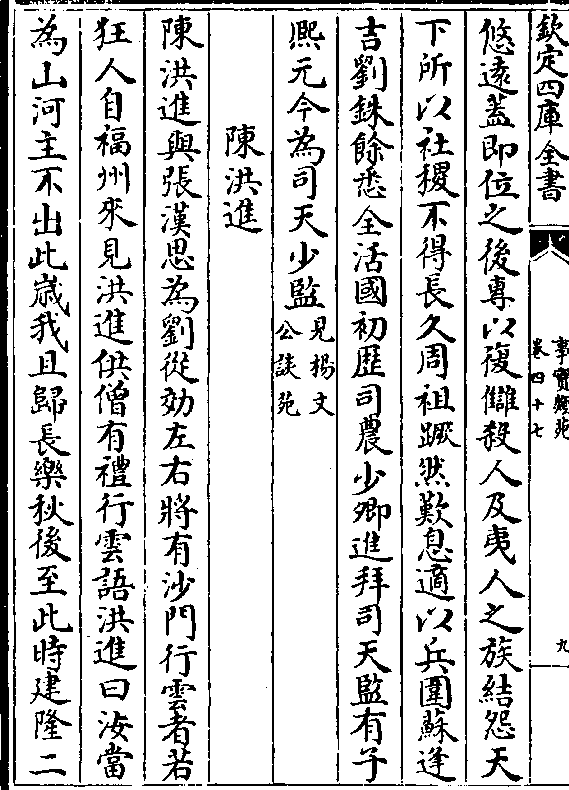 欽定四庫全書
事實類苑
卷四十七
九
悠遠蓋即位之後專以復讎殺人及夷人之族結怨天
下所以社稷不得長久周祖蹶然歎息適以兵圍蘇逢
吉劉銖餘悉全活國初歴司農少卿進拜司天監有子
熈元今為司天少監
見楊文
公談苑
陳洪進
陳洪進與張漢思為劉從効左右將有沙門行雲者若
狂人自福州來見洪進供僧有禮行雲語洪進曰汝當
為山河主不出此嵗我且歸長樂秋後至此時建隆二